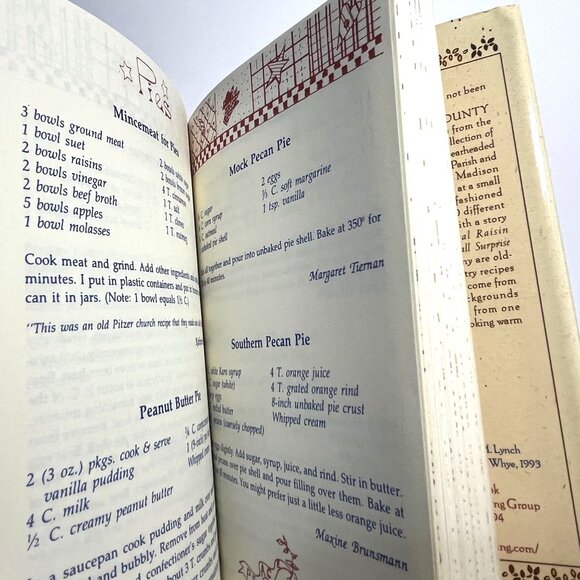 Pies
Mincemeat for Pies
3 bowls ground meat
1 bowl suet
2 bowls raisins
2 bowls vinegar
2 bowls beef broth
5 bowls apples
1 bowl molasses
2 bowls
2 bowls
4 T. cinnamon
1 T. salt
1 T. cloves
1 T. nutmeg
Cook meat and grind. Add other ingredients and
minutes. I put in plastic containers and put
can it in jars. (Note: 1 bowl equals 1½ C.)
"This was an old Pitzer church recipe that they made
Peanut Butter Pie
2 (3 oz.) pkgs. cook & serve
vanilla pudding
4 C. milk
½ C. creamy peanut butter
¾ C.
1 (8-inch)
Whipped
a saucepan cook pudding and milk
and bubbly. Remove from heat
and confectioner's sugar
about 3 T.
Mock Pecan Pie
sugar
C. corn syrup
oatmeal
unbaked pie shell
2 eggs
⅓ C. soft margarine
1 tsp. vanilla
all together and pour into unbaked pie shell. Bake at 350° for
minutes.
Margaret Tiernan
Southern Pecan Pie
white Karo syrup
C. sugar (white)
eggs
melted butter
pecans (coarsely chopped)
4 T. orange juice
4 T. grated orange rind
8-inch unbaked pie crust
Whipped cream
slightly. Add sugar, syrup, juice, and rind. Stir in butter.
pecans over pie shell and pour filling over them. Bake at
minutes. You might prefer just a little less orange juice.
Maxine Brunsmann
not been
OUNTY
from the
ollection of
earheaded
Parish and
Madison
at a small
fashioned
0 different
with a story
al Raisin
all Surprise
are old-
try recipes
come from
ackgrounds
from one
oking warm
M. Lynch
Whye, 1993
ok
ng Group
04
ng.com/